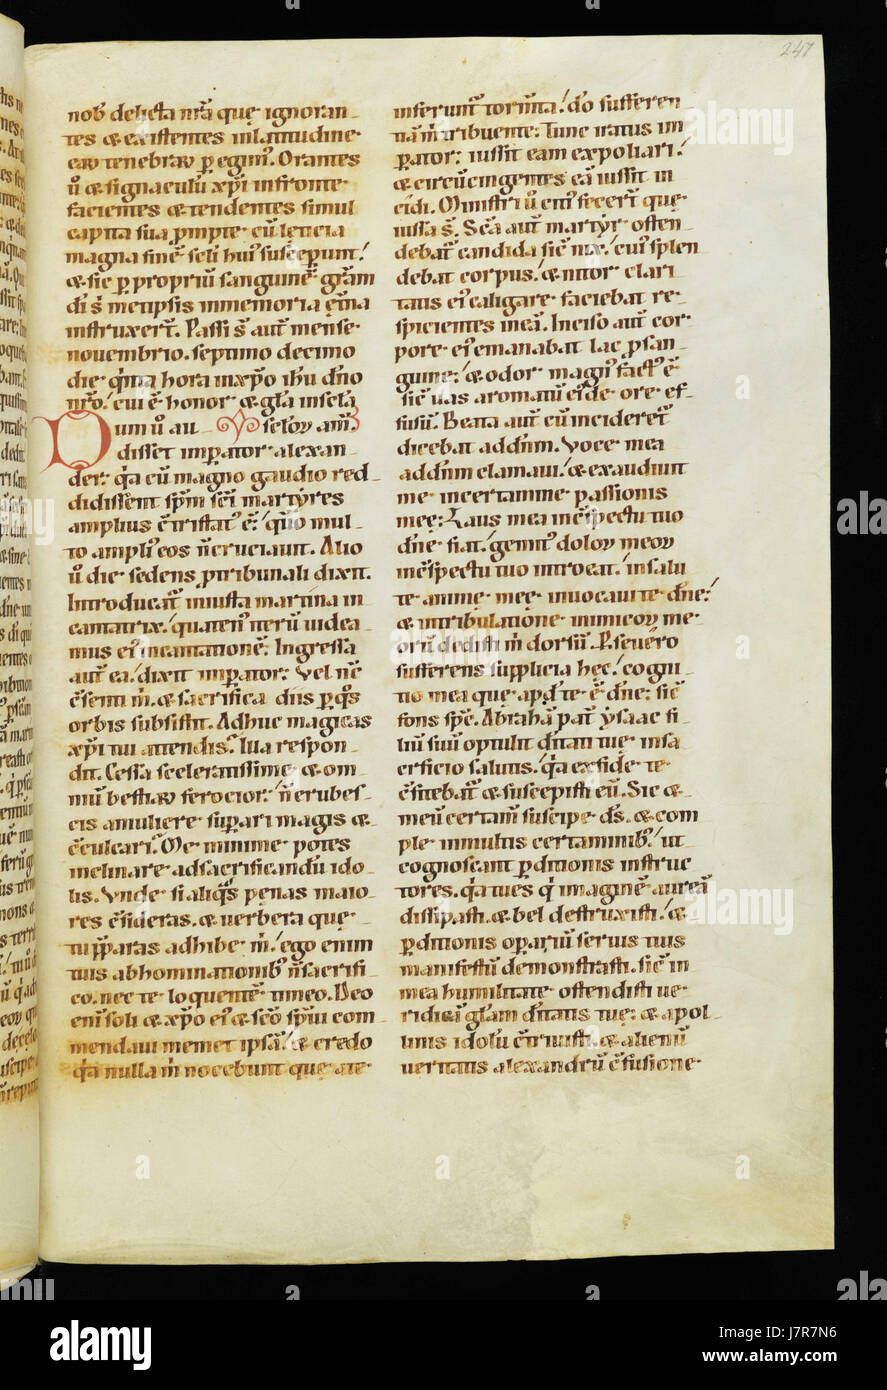 247
nob' delicta nr̄a que ignoran
tes & existentes in latitudine
eaꝝ tenebraꝝ p̱egim'. Orantes
ū & signaculū xp̄i in fronte
facientes & tendentes simul
capita sua p̱mpte cū leticia
magna sine sc̄li hui' susceper̄unt.
& sic p̱ propriū sanguinē gl̄am
dī s̄ met ipsis in memoria et̄na
instruxer̄t. Passi s̄ aut̄ mense
novembrio. septimo decimo
die q̄nta hora in xp̄o ihū dn̄o
nr̄o. cui ē honor & gl̄a in sc̄la
Dum ū au sc̄loꝝ am̄.
disset imp̱ator alexan
der: q̄a cū magno gaudio red
didissent sp̄m sc̄i martyres
amplius c̄tristat' ē. q̄o mul
to ampli' eos n̄ cruciavit. Alio
ū die sedens p̱ tribunali dixit.
Introducat̄ iniusta martina in
cantatrix. quaten' iterū videa
mus ei' incantationē. Ingressa
aut̄ ea. dixit imp̱ator: Vel nc̄
c̄senti m̄. & sacrifica diis p̱ q̄s
orbis subsistit. Adhuc magicas
xp̄i tui attendis. Illa respon
dit. Cessa sceleratissime & om
niū bestiaꝝ ferocior. n̄ erubes
cis a muliere sup̱ari magis &
c̄culcari. Me minime potes
inclinare ad sacrificandū ido
lis. Unde si aliq̄s penas maio
res c̄sideras. & verbera que
tu p̱paras adhibe m̄. ego enim
tuis abhominationib' n̄ sacrifi
co. nec te loquentē timeo. Deo
eni soli & xp̄o ei' & sc̄o sp̄ui com
mendavi memet ipsā. & credo
q̄a nulla m̄ nocebunt que a te
inferunt̄ torm̄ta. dō sufferen
tiā m̄ tribuente: Tunc iratus im
p̱ator: iussit eam expoliari.
& circūcingentes eā iussit in
cidi. Ministri ū ei' fecert̄ que
iussa s̄. Sc̄a aut̄ martyr osten
debat̄ candida sic̄ nix. cui' splen
debat corpus. & nitor clari
tatis ei' caligare faciebat re
spicientes in eā. Inciso aut̄ cor
pore ei' emanabat lac p̱ san
guine: & odor magn' fact' ē
sic̄ vas aromatū ei' de ore ef
fusū. Beata aut̄ cū incideret̄
dicebat ad dn̄m. Voce mea
ad dn̄m clamavi. & exaudivit
me in certamine passionis
meę: Laus mea in c̄spectu tuo
dn̄e fiat. gemit' doloꝝ meoꝝ
in c̄spectu tuo introeat. in salu
te anime mee invocavi te dn̄e.
& in tribulatione inimicoꝝ me
orū dedisti m̄ dorsū. P̱severo
sufferens supplicia hec. cogni
tio mea que apd̄ te ē dn̄e: sic̄
fons spē. Abrahā pat̄ ysaac fi
liū suū optulit d̄itati tuę in sa
crificio salutis. q̄a ex fide te
c̄fitebat̄ & suscepisti eū. Sic &
meū certam̄ suscipe ds̄. & com
ple in multis certaminib'. ut
cognoscant p̱ditionis instruc
tores. q̄a tu es q̄ imaginē aureā
dissipasti. & bel destruxisti. &
p̱ditionis op̱ariū servis tuis
manifestū demonstrasti. sic̄ in
mea humilitate ostendisti ve
ridicā gl̄am d̄itatis tuę: & apol
linis idolū c̄trivisti. & alienū
veritatis alexandrū c̄fusione
alamy
Image ID: J7R7N6
www.alamy.com